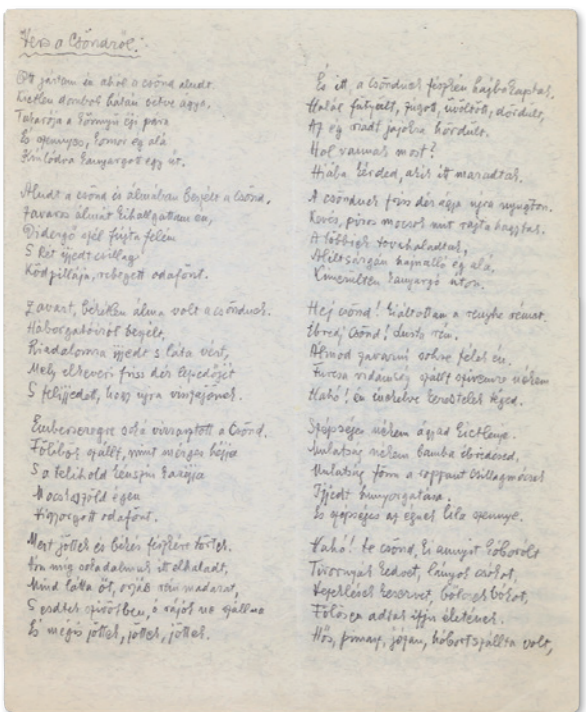 Vers a Csöndről.
Ott jártam én ahol a csönd aludt.
Kietlen dombok hátán vetve ágya,
Takarója a könnyű éji pára
És szennyes, komor ég alá
kanyargott egy út.
Aludt a csönd és álmában beszélt a csönd.
Zavaros álmát kihallgattam én,
Didergő szél fújta felém
S két ijjedt csillag
Ködpillája, rebegett odafönt.
Zavart, béketlen álma volt a csöndnek.
Háborgatóiról beszélt,
Riadalomra ijjedt s láta vért,
Mely elkeveri friss dér lepedőjét
S felijjedt, hogy ujra vissza jönnek.
Embersereg visszajött a Csönd.
Fölibök szállt, mint mérges héjja
S a telihold
Mocskos zöld egen
Vigyorgott odafönt.
Mert jöttek és békés fészkére törtek.
Ám míg sokadalmuk itt elhaladt,
Mind látta őt, óriás rém madarat,
S esdtek szívökben, a rájok ne szállna
És mégis jöttek, jöttek, jöttek.
És itt, a csöndnek fészkén hajba kaptak.
Halál fütyült, zúgott, üvöltött, dördült,
Az ég riadt jajokra hördült.
Hol vannak most?
Hiába kérded, akik itt maradtak.
A csöndnek friss dér ágya ujra nyugton.
Kevés, piros mocsok mit rajta hagytak.
A többiek tovahaladtak,
hajnalló ég alá,
Kimerülten kanyargó úton.
Hej csönd! kiáltottam a renyhe rémet.
Ébredj Csönd! Lusta rém.
Álmod zavarni sohse félek én.
Furcsa vidámság szállt szívemre nékem
Hahó! én merelve kereslek téged.
Szépséges nékem ágyad kietlenje.
Mulatság nékem bamba ébredésed,
Mulatság fönn a roppant csillagmécses
Ijjedt hunyorgatása.
És szépséges az égnek lila szennye.
Hahó! te csönd, ki annyit kóborolt
Tivornyás kedvet, lányok csókot,
bölcs bókot,
Fölösen adtál ifju életének.
Hős, pimasz, józan, hóbort szállta volt,